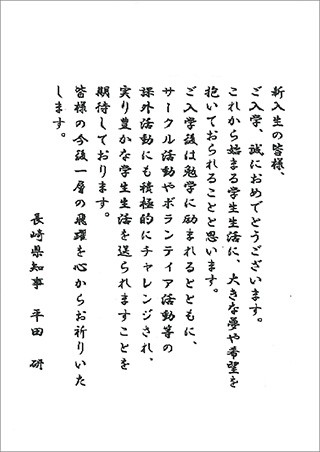 新入生の皆様、
ご入学、誠におめでとうございます。
これから始まる学生生活に、大きな夢や希望を
抱いておられることと思います。
ご入学後は勉学に励まれるとともに、
サークル活動やボランティア活動等の
課外活動にも積極的にチャレンジされ、
実り豊かな学生生活を送られますことを
期待しております。
皆様の今後一層の飛躍を心からお祈りいた
します。
長崎県知事 平田 研